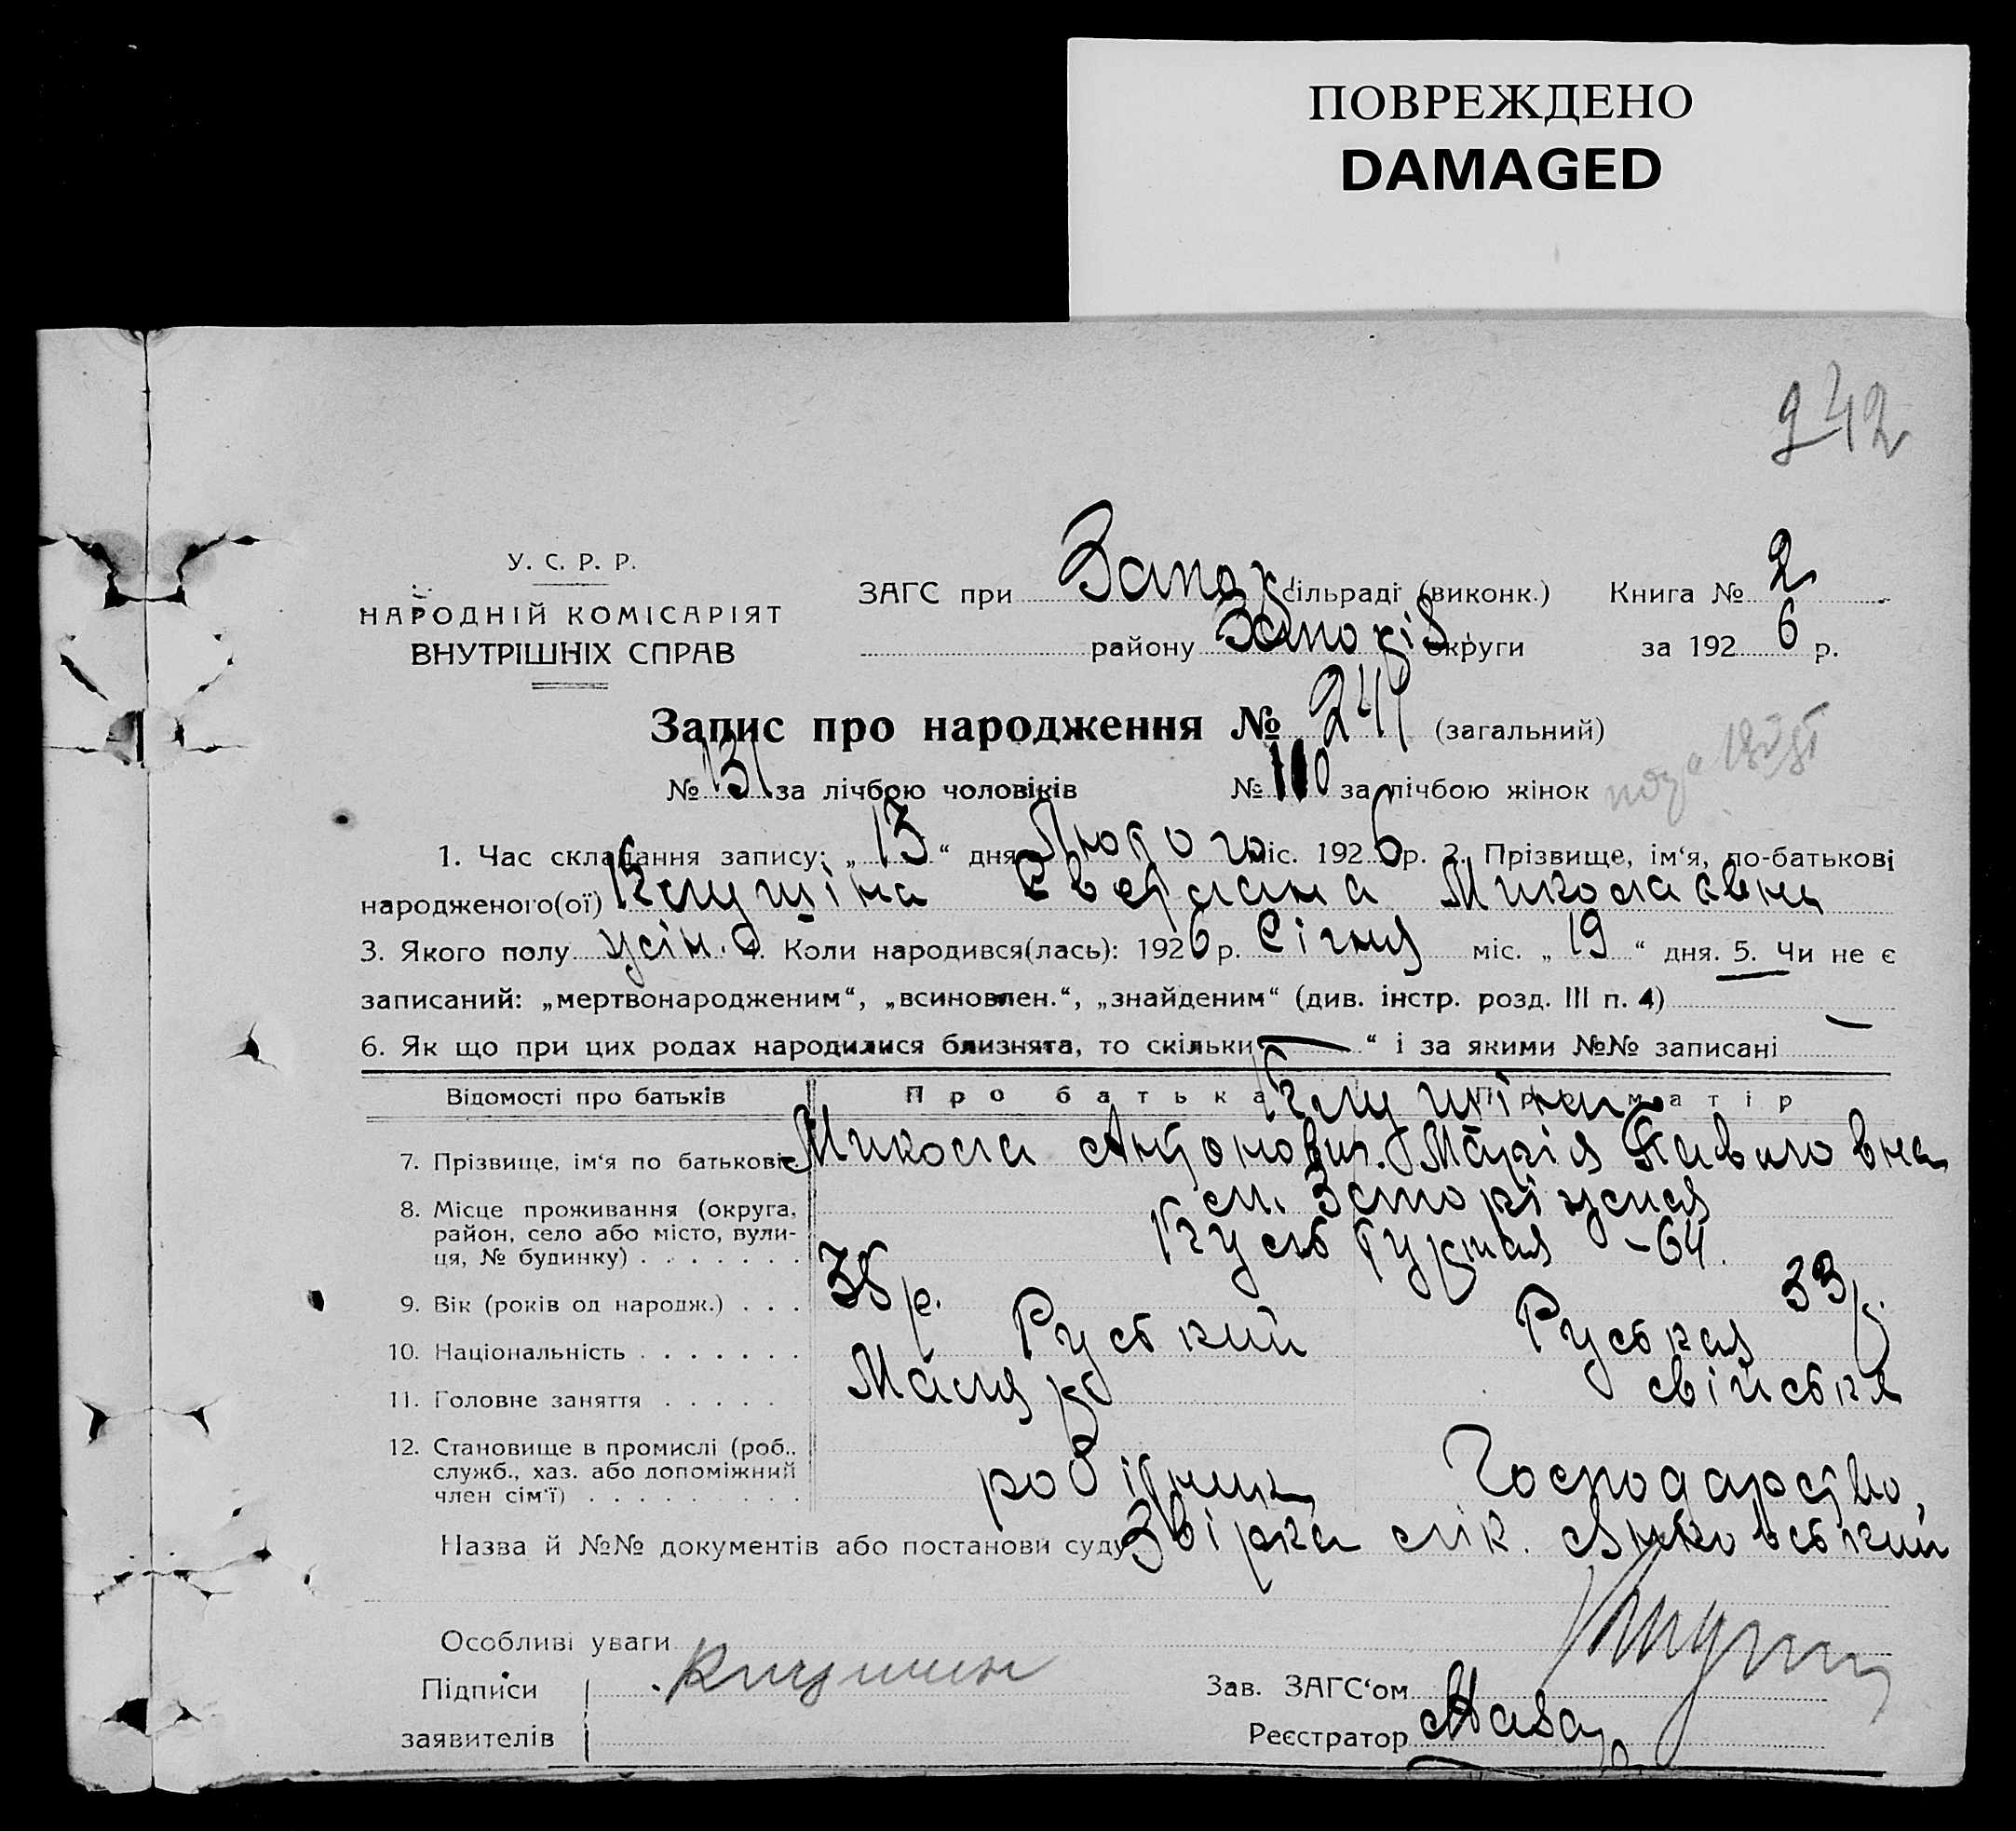 ПОВРЕЖДЕНО
DAMAGED
242
У. С. Р. Р.
НАРОДНІЙ КОМІСАРІЯТ
ВНУТРІШНІХ СПРАВ
ЗАГС при Запор сільраді (виконк.) Книга № 2
району Запоріз округи за 1926 р.
Запис про народження № 241 (загальний)
№ 131 за лічбою чоловіків № 110 за лічбою жінок
1. Час складання запису: „13“ дня Лютого міс. 1926 р. 2. Прізвище, ім‘я, по-батькові
народженого(ої) Клушіна Светлана Миколаєвна
3. Якого полу жін. 4. Коли народився(лась): 1926 р. Січня міс. „19“ дня. 5. Чи не є
записаний: „мертвонародженим“, „всиновлен.“, „знайденим“ (див. інстр. розд. III п. 4) —
6. Як що при цих родах народилися близнята, то скільки — “ і за якими №№ записані
Відомості про батьків Про батька Про матір
Клушіни
7. Прізвище, ім‘я по батькові Микола Антонович. Марія Павловна
8. Місце проживання (округа, район, село або місто, вулиця, № будинку) . . . . . . . м. Запоріжжя
- 64.
9. Вік (років од народж.) . . . 38 р. 33 р.
10. Національність . . . . . . . Руський Руськая
11. Головне заняття . . . . . Маляр свійське
12. Становище в промислі (роб., служб., хаз. або допоміжний член сім‘ї) . . . . . . . . . робітник Господарство,
Назва й №№ документів або постанови суду Звірка лік. Янковський
Особливі уваги
Підписи Клушин Зав. ЗАГС‘ом
заявителів Реєстратор